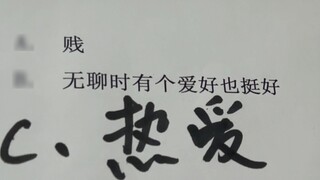 贱
无聊时有个爱好也挺好
C、热爱